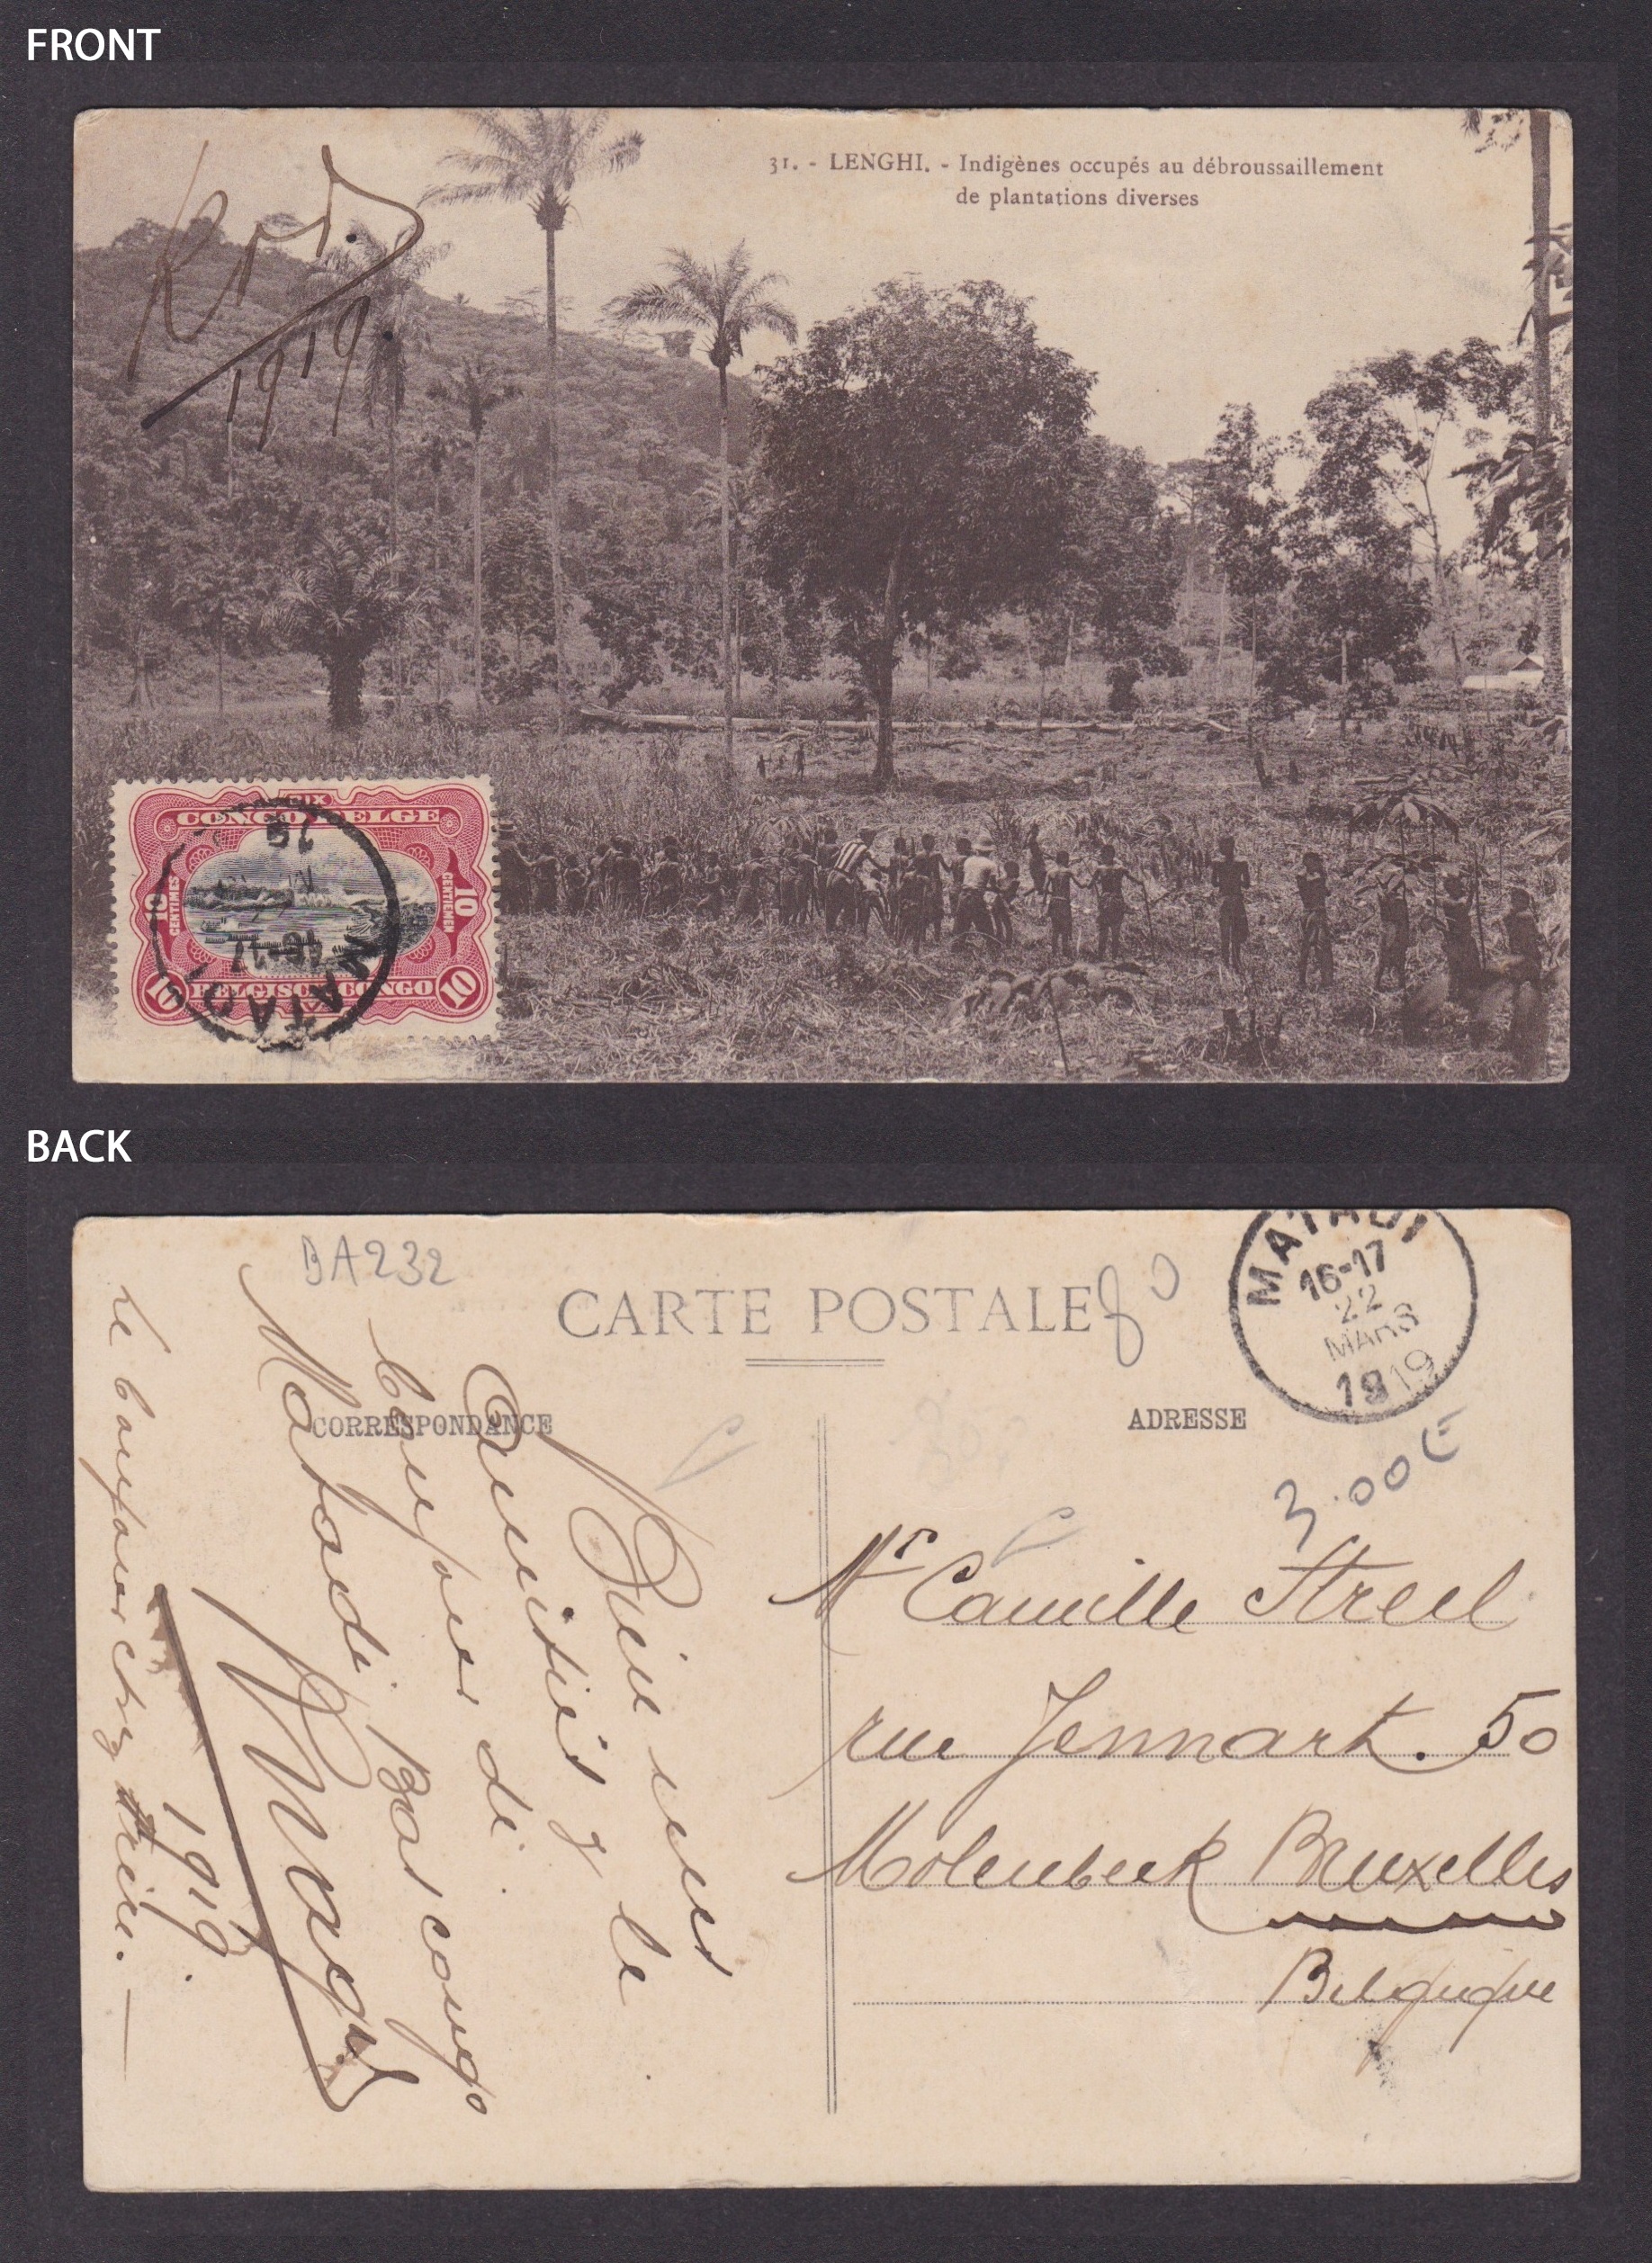 FRONT
31. - LENGHI. - Indigènes occupés au débroussaillement
de plantations diverses
1919
DIX
CONGO BELGE
10
CENTIMES
10
CENTIEMEN
10
BELGISCH CONGO
10
MATADI
16-17
19
BACK
BA232
CARTE POSTALE
80
MATADI
16-17
22
MARS
1919
CORRESPONDANCE
ADRESSE
3.00€
Mr Camille Streel
rue Jennart. 50
Molenbeek Bruxelles
Belgique
Bien
Amitiés
de
Matadi. congo
Le bonjour chez
1919